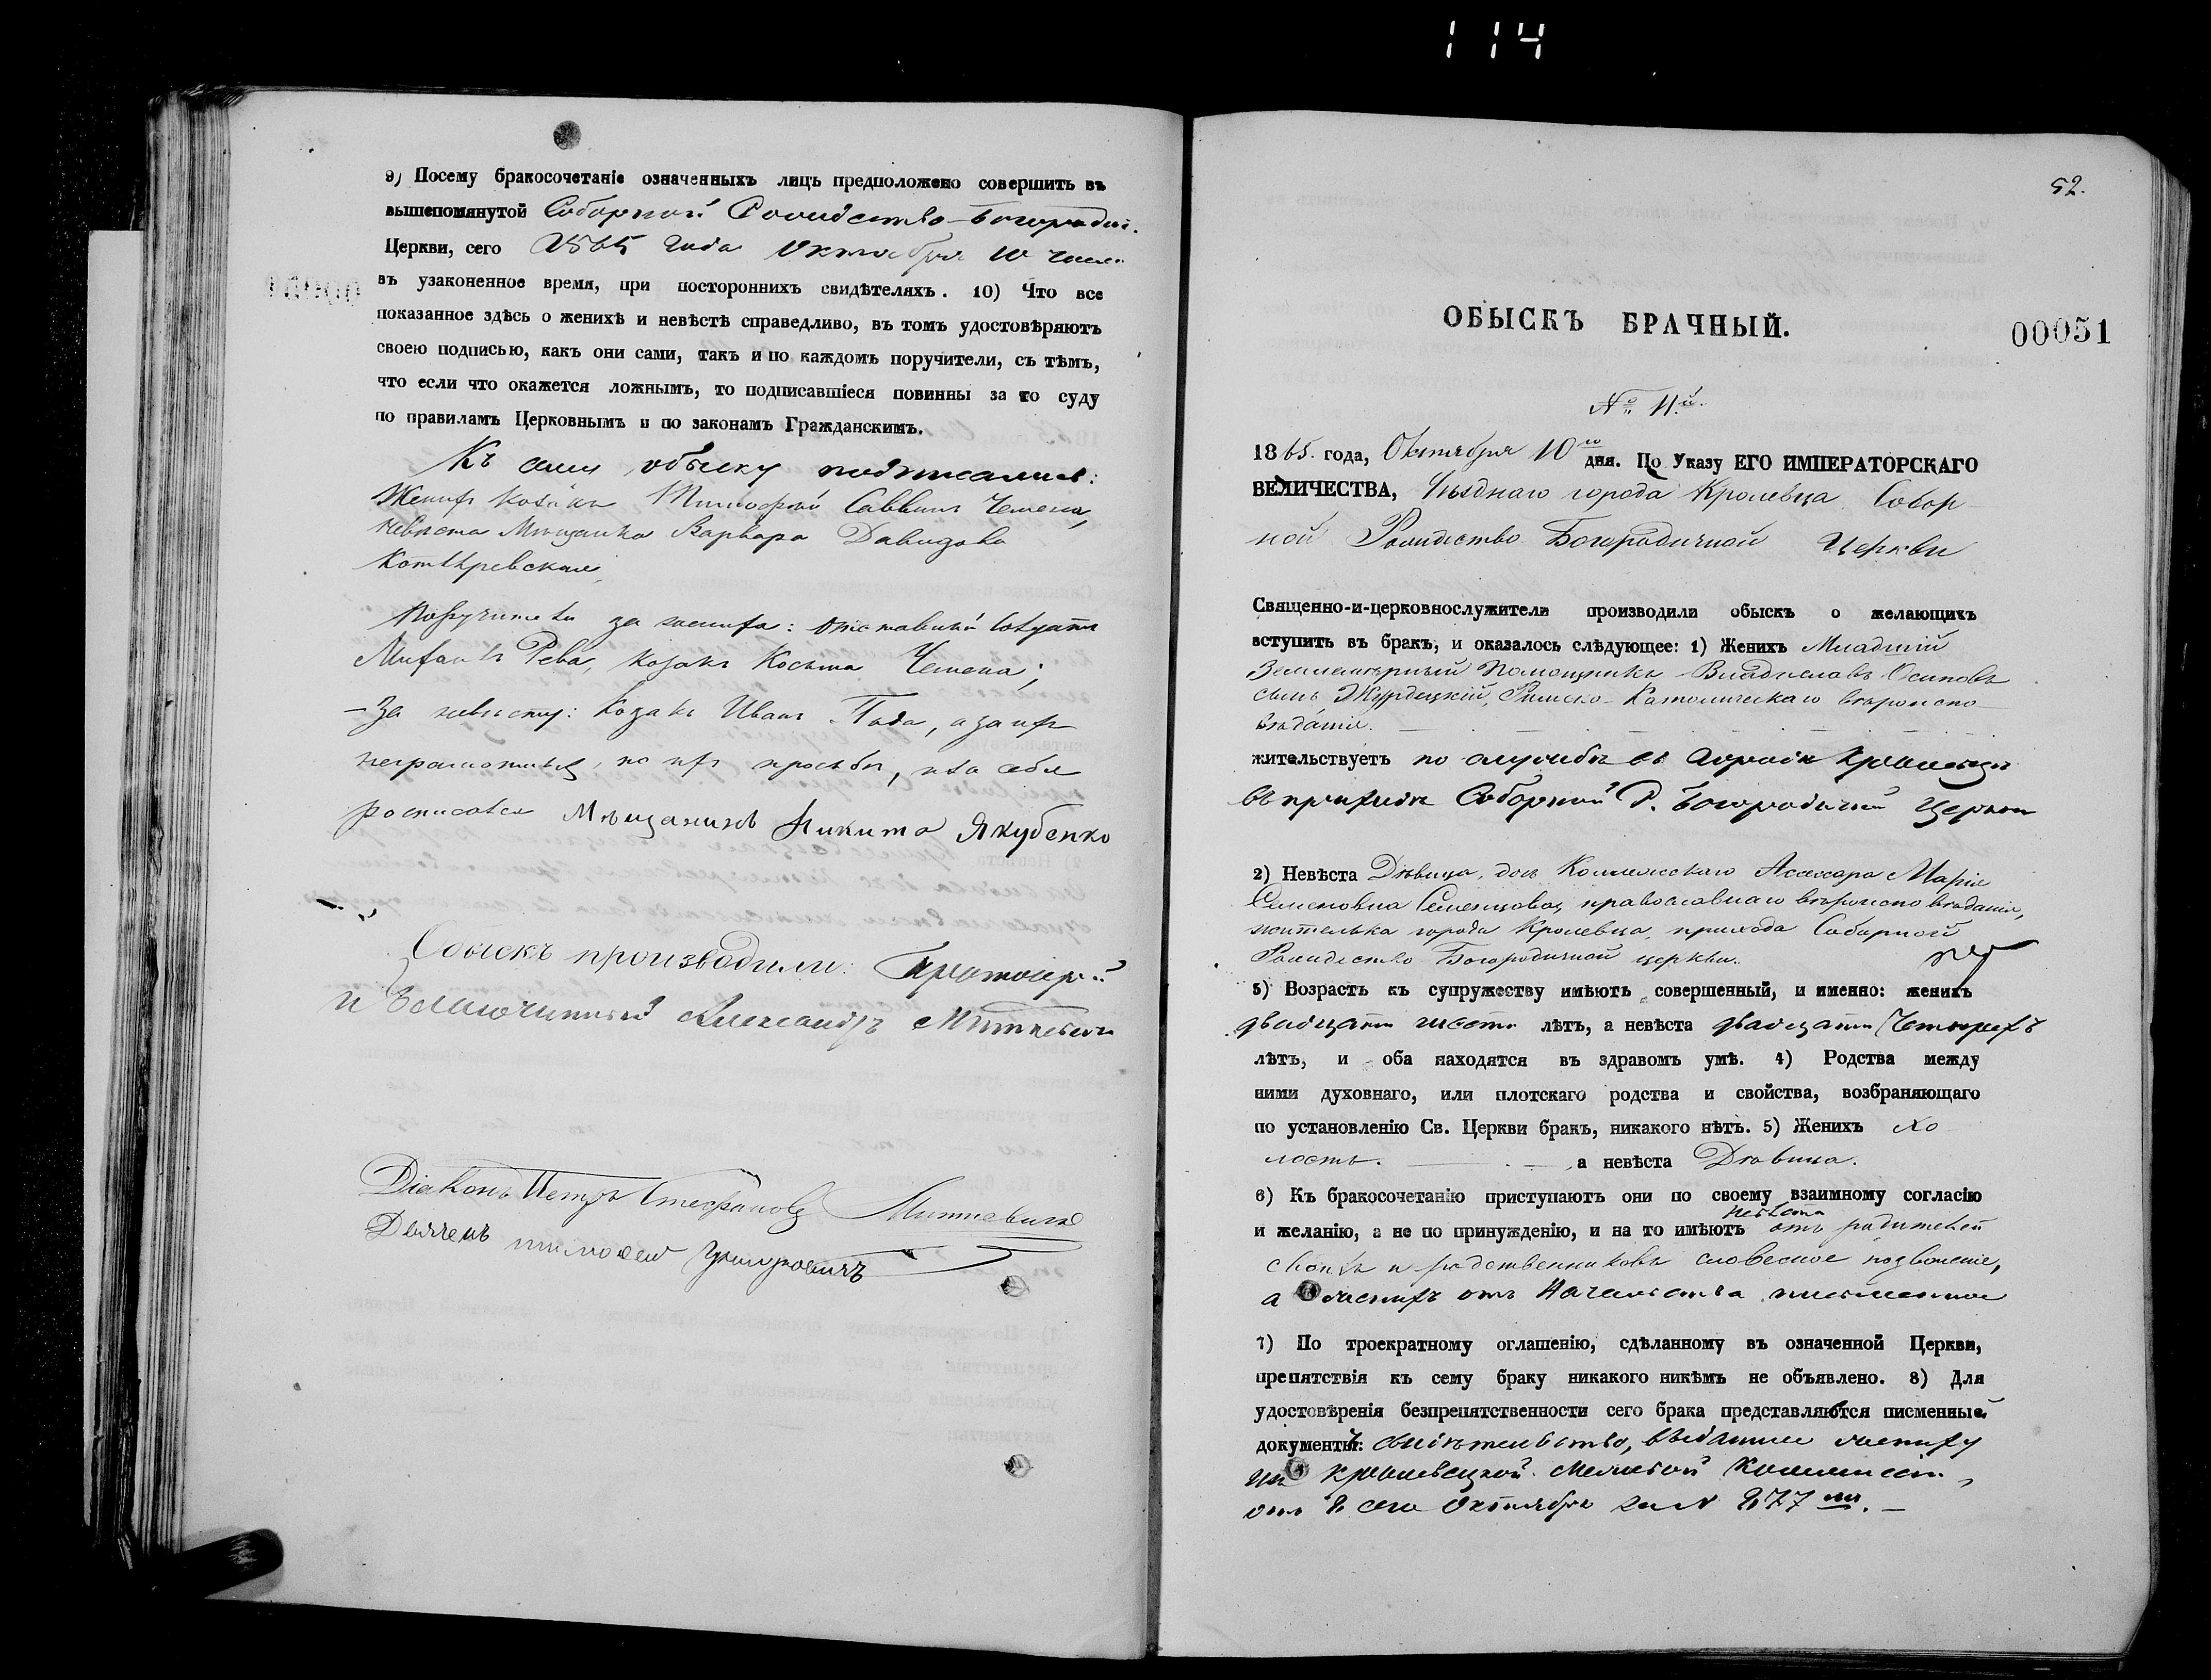 114
9) Посему бракосочетаніе означенныхъ лицъ предположено совершить въ
вышепомянутой Соборной Рождество-Богородич.
Церкви, сего 1865 года Октября 10 числа
въ узаконенное время, при постороннихъ свидѣтеляхъ. 10) Что все
показанное здѣсь о женихѣ и невѣстѣ справедливо, въ томъ удостовѣряютъ
своею подписью, какъ они сами, такъ и по каждомъ поручители, съ тѣмъ,
что если что окажется ложнымъ, то подписавшіеся повинны за то суду
по правиламъ Церковнымъ и по законамъ Гражданскимъ.
Къ сему обыску подписались:
Женихъ козакъ Тимофей Саввинъ Чемена,
невѣста Мѣщанка Варвара Давидова
Поручители за жениха: отставный солдатъ
Рева, козакъ Косьма Чемена;
– За невѣсту: козакъ Иванъ а за ихъ
неграмотныхъ, по ихъ просьбѣ, и за себя
росписался Мѣщанинъ Никита Якубенко
Обыскъ производили: Протоіерей
и Благочинный Александръ Миткевичъ
Діаконъ Петръ Стефановъ Миткевичъ
Дьячекъ Тимофей
52.
ОБЫСКЪ БРАЧНЫЙ.
00051
№ 11й.
1865. года, Октября 10го дня. По Указу ЕГО ИМПЕРАТОРСКАГО
ВЕЛИЧЕСТВА, Уѣзднаго города Кролевца Собор
ной Рождество Богородичной Церкви
Священно-и-церковнослужители производили обыскъ о желающихъ
вступить въ бракъ, и оказалось слѣдующее: 1) Женихъ Младшій
Землемѣрный Помощникъ Владиславъ Осиповъ
сынъ Журдецкій, Римско-Католическаго вѣроиспо
вѣданія.
жительствуетъ по службѣ въ городѣ Кролевцѣ
въ приходѣ Соборной Р. Богородичной Церкви
2) Невѣста Дѣвица, дочь Коллежскаго Асессора Марія
Семеновна Семенцова, православнаго вѣроисповѣданія,
жителька города Кролевца, прихода Соборной
Рождество Богородичной церкви.
3) Возрастъ къ супружеству имѣютъ совершенный, и именно: женихъ
двадцати шести лѣтъ, а невѣста двадцати четырехъ
лѣтъ, и оба находятся въ здравомъ умѣ. 4) Родства между
ними духовнаго, или плотскаго родства и свойства, возбраняющаго
по установленію Св. Церкви бракъ, никакого нѣтъ. 5) Женихъ хо
лостъ. а невѣста Дѣвица.
6) Къ бракосочетанію приступаютъ они по своему взаимному согласію
и желанію, а не по принужденію, и на то имѣютъ невѣста отъ родителей
своихъ и родственниковъ словесное позволеніе,
а женихъ отъ Начальства письменное
7) По троекратному оглашенію, сдѣланному въ означенной Церкви,
препятствія къ сему браку никакого никѣмъ не объявлено. 8) Для
удостовѣренія безпрепятственности сего брака представляются писменные
документы: свидѣтельство, выданное жениху
изъ Кролевецкой Межевой Коммисіи,
отъ 8 сего Октября за № 877 мъ. —